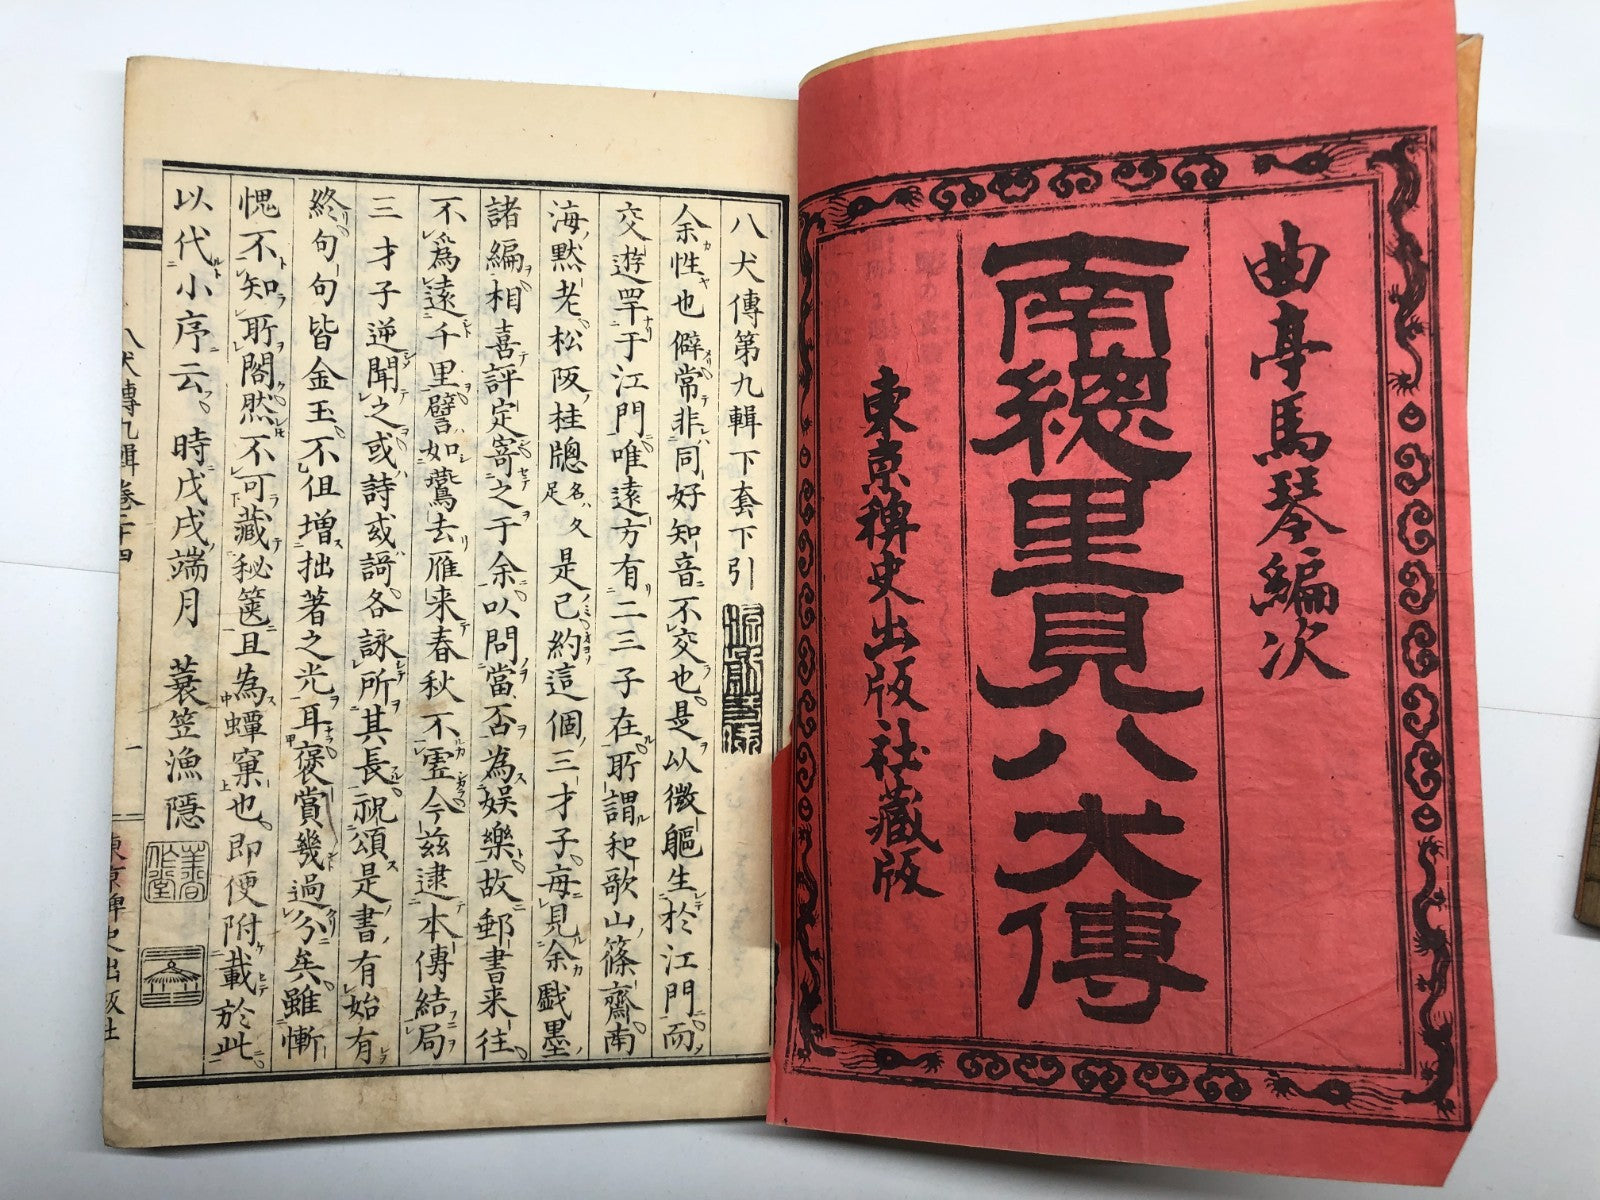 曲亭馬琴編次
南總里見八犬傳
東京稗史出版社藏版
八犬傳第九輯下套下引
余性也僻常非同好知音不交也是以微軀生於江門而
交遊罕于江門唯遠方有二三子在所謂和歌山篠齋南
海黙老松阪桂牕名久足是已約這個三才子每見余戲墨
諸編相喜評定寄之于余以問當否為娯樂故郵書来往
不為遠千里譬如鷰去雁来春秋不虚今兹逮本傳結局
三才子逆聞之或詩或謌各詠所其長祝頌是書有始有
終句句皆金玉不但增拙著之光耳褒賞幾過分矣雖慚
愧不知所閣然不可藏秘篋且為蟫窠也即便附載於此
以代小序云時戊戌端月 蓑笠漁隠
八犬傳九輯卷二十四
一
東京稗史出版社